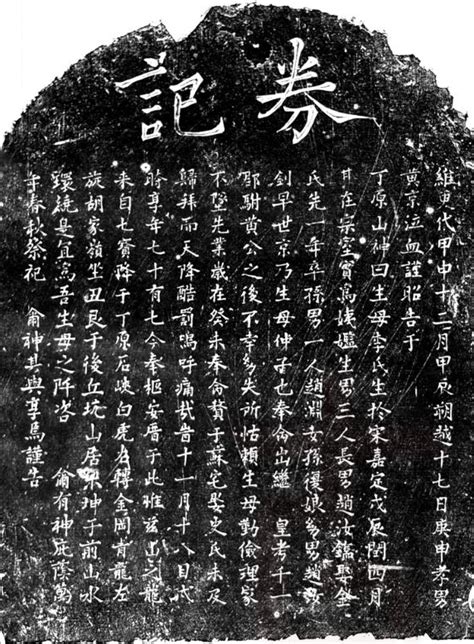 券記
維代甲申十二月甲辰朔越十七日庚申孝男
黃京泣血謹昭告于
丁原山神曰生母李氏生於宋嘉定戊辰閏四月
其在宗室實為姨生男三人長男趙汝鑑娶金
氏先一年卒孫男一人趙淵女孫復娘男趙汝
釗早世京乃生母仲子也奉命出繼 皇考千一
黃公之後不幸失所怙賴生母勤儉理家
不墮先業歲在癸未奉命贅于蘇宅娶史氏未及
歸拜而天降酷罰嗚呼痛哉昔十一月十八日
時享年七十有七今奉柩安厝于此惟茲山之龍
來自七寶降于丁原石峽白虎右轉金岡青龍左
旋胡家嶺坐丑艮于後丘坑山居未坤于前山水
環繞是宜為吾生母之阡咨 爾有神庇蔭萬
年春秋祭祀 爾神其與享焉謹告